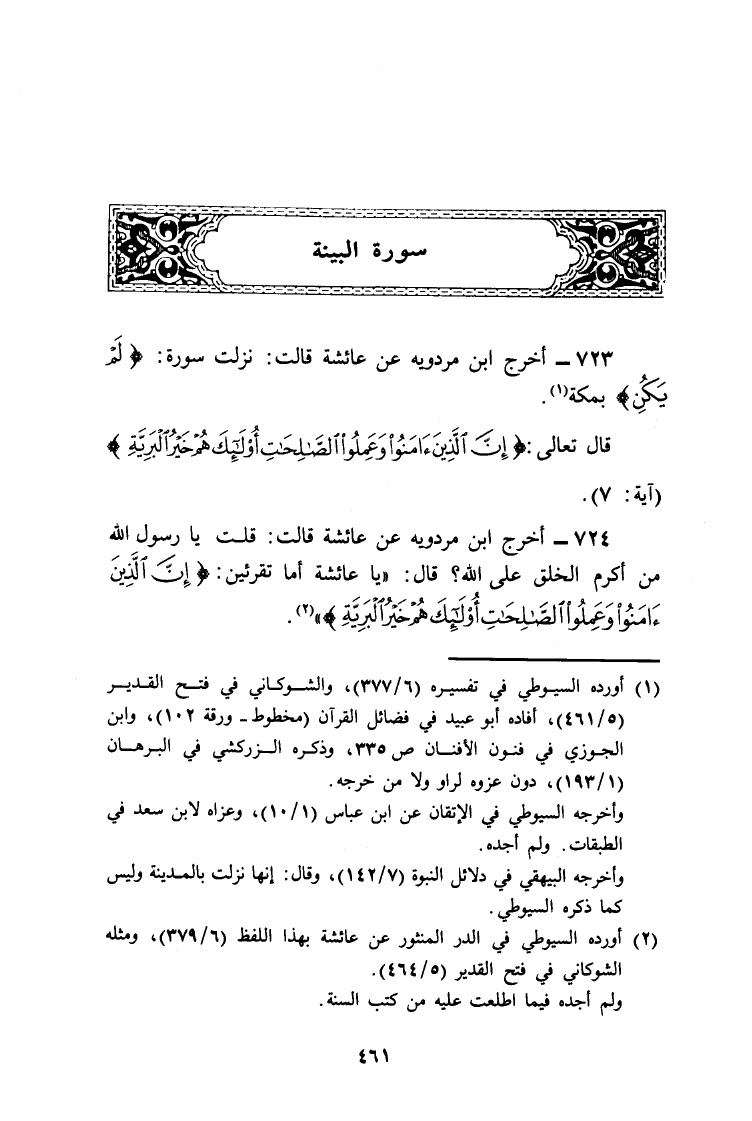 سورة البينة
٧٢٣ ـ أخرج ابن مردويه عن عائشة قالت: نزلت سورة: ﴿ لَمْ
يَكُنِ﴾ بمكة(١).
قال تعالى: ﴿ إِنَّ ٱلَّذِينَ ءَامَنُواْ وَعَمِلُواْ ٱلصَّٰلِحَٰتِ أُوْلَٰٓئِكَ هُمْ خَيْرُ ٱلْبَرِيَّةِ ﴾
(آية: ٧).
٧٢٤ ـ أخرج ابن مردويه عن عائشة قالت: قلت يا رسول الله
من أكرم الخلق على الله؟ قال: «يا عائشة أما تقرئين: ﴿ إِنَّ ٱلَّذِينَ
ءَامَنُواْ وَعَمِلُواْ ٱلصَّٰلِحَٰتِ أُوْلَٰٓئِكَ هُمْ خَيْرُ ٱلْبَرِيَّةِ ﴾»(٢).
(١) أورده السيوطي في تفسيره (٣٧٧/٦)، والشوكاني في فتح القدير
(٤٦١/٥)، أفاده أبو عبيد في فضائل القرآن (مخطوط ـ ورقة ١٠٢)، وابن
الجوزي في فنون الأفنان ص ٣٣٥، وذكره الزركشي في البرهان
(١٩٣/١)، دون عزوه لراو ولا من خرجه.
وأخرجه السيوطي في الإتقان عن ابن عباس (١٠/١)، وعزاه لابن سعد في
الطبقات. ولم أجده.
وأخرجه البيهقي في دلائل النبوة (١٤٢/٧)، وقال: إنها نزلت بالمدينة وليس
كما ذكره السيوطي.
(٢) أورده السيوطي في الدر المنثور عن عائشة بهذا اللفظ (٣٧٩/٦)، ومثله
الشوكاني في فتح القدير (٤٦٤/٥).
ولم أجده فيما اطلعت عليه من كتب السنة.
٤٦١